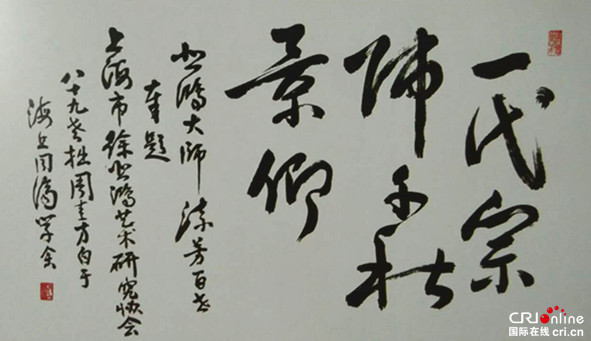 一代宗
师千秋
景仰
悲鸿大师 流芳百世
奉题
上海市徐悲鸿艺术研究协会
八十九老拙周方白于
海上同济学舍
CRI online
国际在线 cri.cn